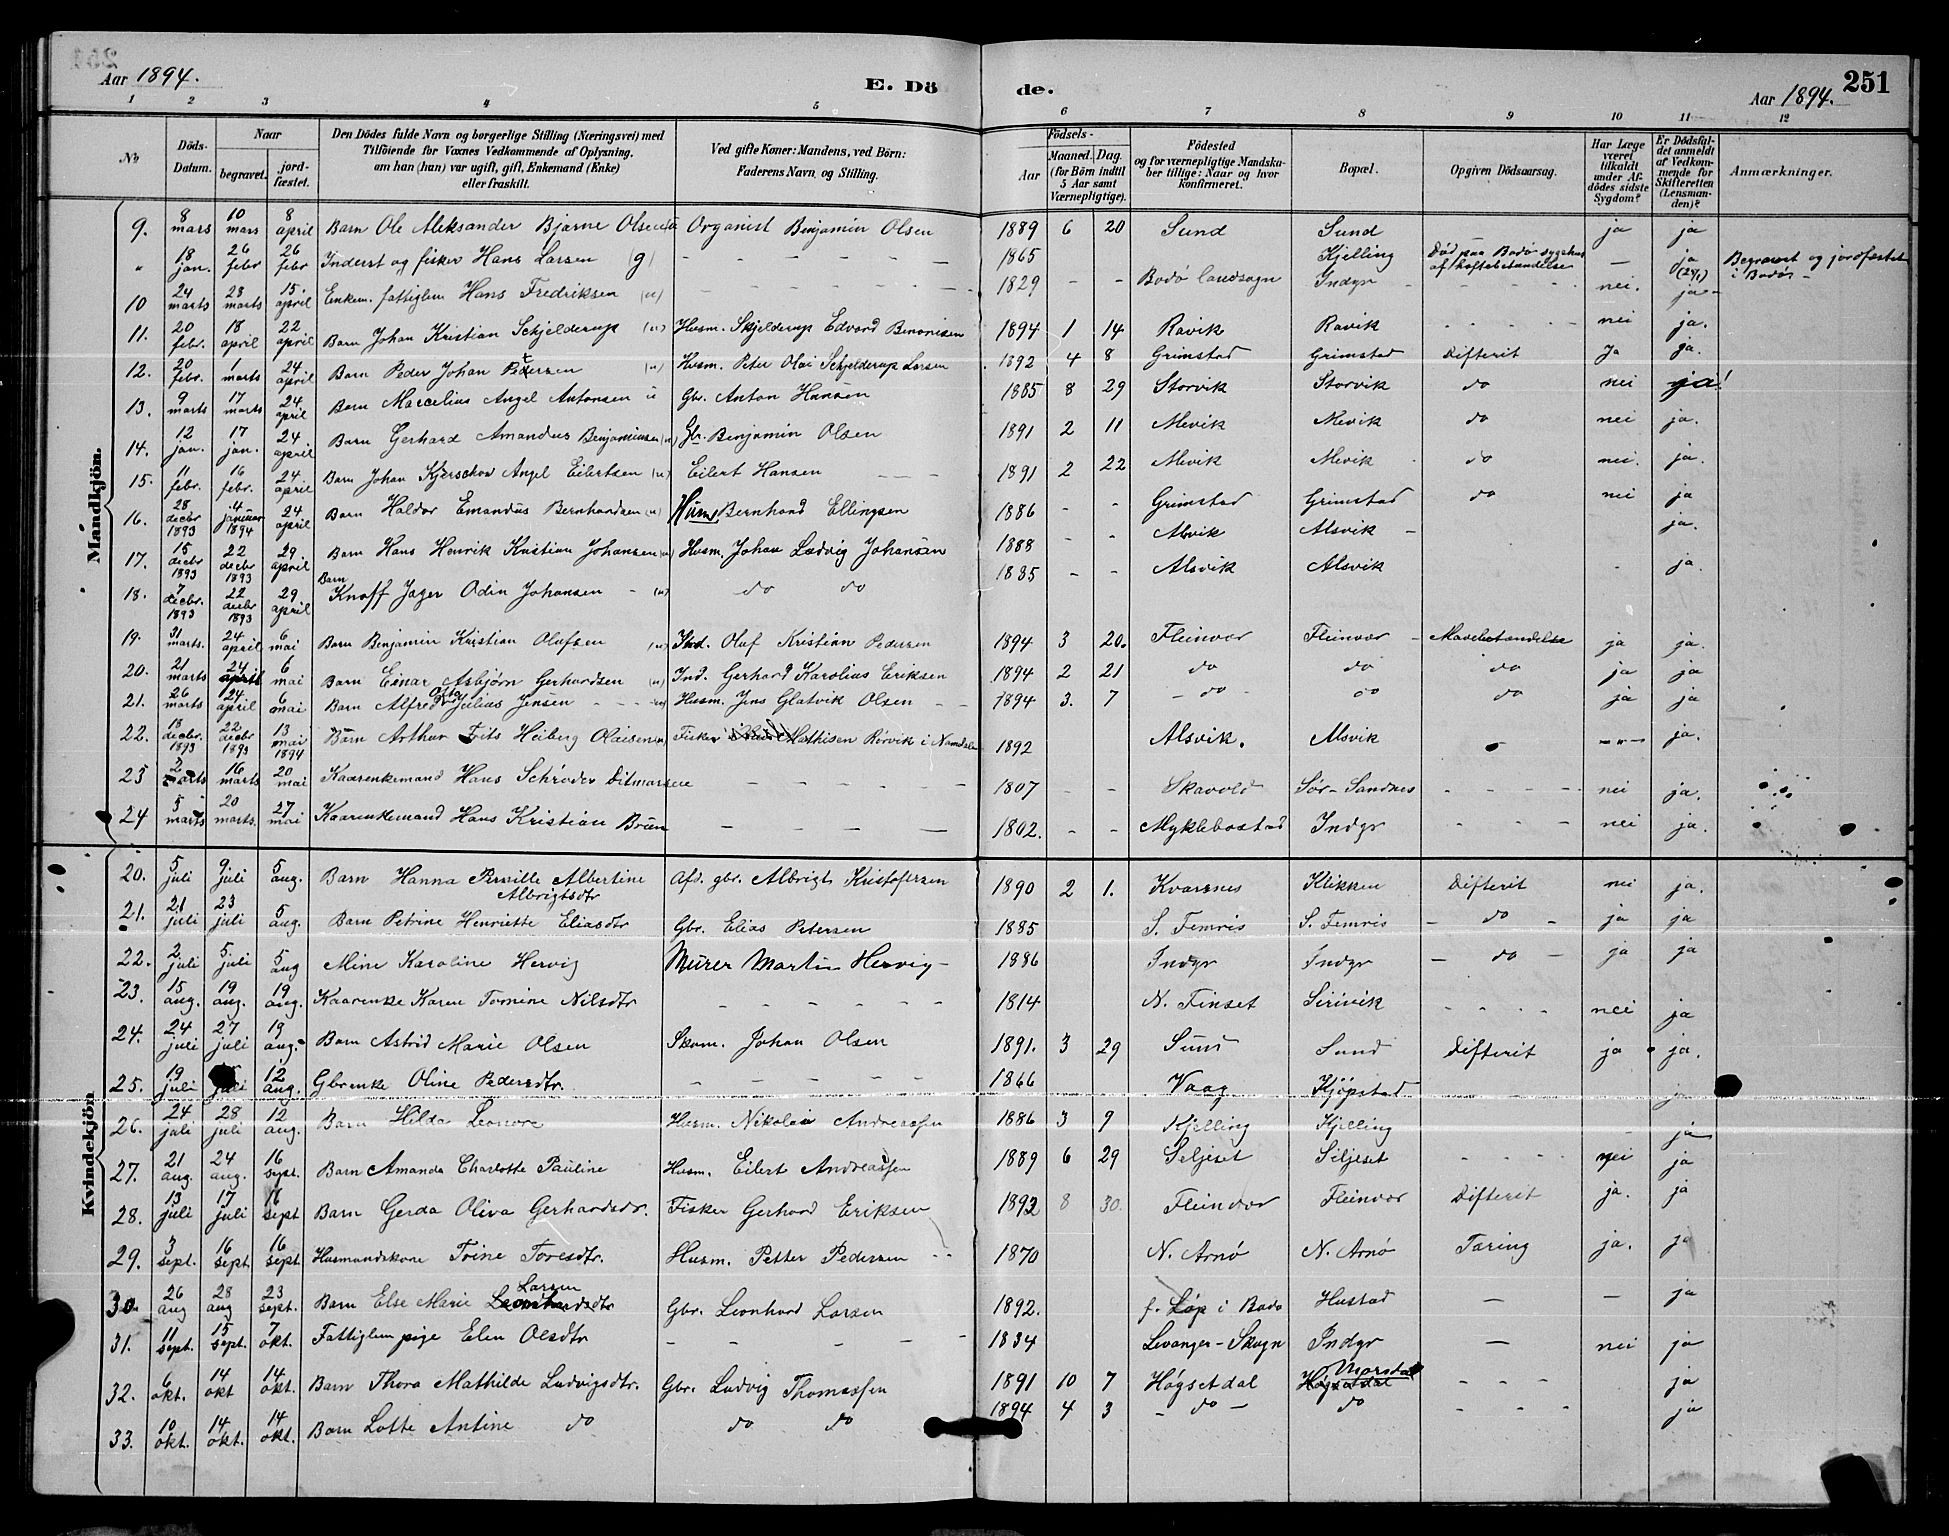 Aar 1894.
E. Dö
de.
251
Aar 1894.
1 2 3 4 5 6 7 8 9 10 11 12
No
Döds-Datum.
Naar
begravet. jord-fæstet.
Den Dödes fulde Navn og borgerlige Stilling (Næringsvei) med
Tilföiende for Voxnes Vedkommende af Oplysning,
om han (hun) var ugift, gift, Enkemand (Enke)
eller fraskilt.
Ved gifte Koner: Mandens, ved Börn:
Faderens Navn og Stilling.
Födsels-
Aar Maaned. Dag.
(for Börn indtil
5 Aar samt
Værnepligtige).
Födested
og for værnepligtige Mandska-
ber tillige: Naar og hvor
konfirmeret.
Bopæl.
Opgiven Dödsaarsag.
Har Læge
været
tilkaldt
under Af-
dödes sidste
Sygdom?
Er Dödsfal-
det anmeldt
af Vedkom-
mende for
Skifteretten
(Lensman-
den)?
Anmærkninger.
Mandkjön.
9. 8 mars 10 mars 8 april Barn Ole Aleksander Bjarne Olsen Organist Benjamin Olsen 1889 6 20 Sund Sund ja ja
" 18 jan. 26 febr 26 febr Inderst og fisker Hans Larsen (g) 1865 Kjelling Död paa Bodö sygehus af Halsbetændelse — ja Begravet og jordfæstet i Bodö -
10 24 marts 28 marts 15 april Enkem. fattiglem Hans Fredriksen (u) 1829 - - Bodö landsogn Indyr nei. ja
11. 20 febr. 18 april 22 april Barn Johan Kristian Schjelderup (u) Husm. Skjelderup Edvard Benonisen 1894 1 14 Ravik Ravik nei ja.
12. 20 febr. 1 marts 24 april Barn Peder Johan Petersen (u) Husm. Peter Olai Schjelderup Larsen 1892 4 8 Grimstad Grimstad Difterit Ja ja.
13. 9 marts 17 marts 24 april Barn Marcelius Angel Antonsen u Gbr. Anton Hansen 1885 8 29 Storvik Storvik do nei ja!
14. 12 jan. 17 jan. 24 april Barn Gerhard Amandus Benjaminsen (u) Gbr. Benjamin Olsen 1891 2 11 Mevik Mevik do nei ja.
15. 11 febr. 16 febr. 24 april Barn Johan Kjerschow Angel Eilertsen (u) Eilert Hansen 1891 2 22 Mevik Mevik do nei. ja.
16. 28 decbr 1893 4 januar 1894 24 april Barn Haldor Emandus Bernhardsen (u) Husm Bernhard Ellingsen 1886 - - Grimstad Grimstad do nei ja
17. 15 decbr 1893 22 decbr 1893 29 april Barn Hans Henrik Kristian Johansen (u) Husm. Johan Ludvig Johansen 1888 - - Alsvik Alsvik - ja.
18. 7 decbr. 1893 22 decbr 1893 29 april Barn Knoff Jager Odin Johansen - (u) do do 1885 - - Alsvik Alsvik - ja.
19. 31 marts. 24 april 6 mai Barn Benjamin Kristian Olufsen (u) Ind. Oluf Kristian Pedersen 1894 3 20. Fleinvær Fleinvær - Mavebetændelse ja ja.
20. 21 marts 24 april 6 mai Barn Einar Asbjørn Gerhardsen (u) Ind. Gerhard Karolius Eriksen 1894 2 21 do do do ja ja
21. 26 marts 24 april 6 mai Barn Alfred Julius Jensen Husm. Jens Glatvik Olsen 1894 3. 7 - do - do do ja ja
22. 18 decbr. 1893 22 decbr 1893 13 mai 1894 Barn Arthur Frits Heiberg Olaisen Fisker Mathisen Rørvik i Namdalen 1892 Alsvik. Alsvik ja.
23 2 marts 16 marts 20 mai Kaarenkemand Hans Schrøder Ditmarsen 1807 - - Skavold Sör-Sandnes nei ja.
24 5 marts 20 marts. 27 mai Kaarenkemand Hans Kristian Bruun 1802. - - Myklebostad Indyr nei ja.
Kvindekjön
20. 5 juli 9 juli 5 aug. Barn Hanna Pernille Albertine Albrigtsdtr Afd. gbr. Albrigt Kristofersen 1890 2 1. Kvarsnes Klikken Difterit nei ja.
21. 21 juli 23 juli 5 aug. Barn Petrine Henriette Eliasdtr Gbr. Elias Petersen 1885 S. Femris S. Femris - do - ja ja
22. 2 juli 5 juli 5 aug Mine Karoline Hervig Murer Martin Hervig 1886 Indyr Indyr - do - ja ja
23. 15 aug. 19 aug. 19 aug. Kaarenke Karen Tomine Nilsdtr 1814 N. Finset Sirivik nei ja
24. 24 juli 27 juli 19 aug. Barn Astrid Marie Olsen Skom. Johan Olsen 1891. 3 29 Sund Sund Difterit ja ja.
25. 19 juli juli 12 aug. Gbrenke Oline Pedersdtr. 1866 Vaag Kjöpstad ja
26. 24 juli 28 juli 12 aug. Barn Hilda Leonore Husm. Nikolai Andreassen 1886 3 9 Kjelling Kjelling - ja
27. 21 aug. 24 aug. 16 sept. Barn Amanda Charlotte Pauline Husm. Eilert Andreassen 1889 6 29 Seljeset Seljeset nei ja
28. 13 juli 17 juli 16 sept Barn Gerda Oliva Gerhardsdr. Fisker Gerhard Eriksen 1892 8 30. Fleinvær Fleinvær Difterit ja. ja
29. 3 sept. 16 sept 16 sept Husmandskone Trine Toresdtr. Husm. Petter Pedersen 1870 N. Arnö N. Arnö Taring ja. ja
30. 26 aug 28 aug 23 sept. Barn Else Marie Larsen Gbr. Leonhard Larsen 1892. f. Löp i Bodö Hustad — — ja
31. 11 sept. 15 sept. 7 okt. Fattiglem pige Elen Olsdtr 1834 Levanger-Skogn Indyr — nei ja
32. 6 okt. 14 okt 14 okt. Barn Thora Mathilde Ludvigsdtr. Gbr. Ludvig Thomassen 1891 10 7 Høgsetdal Morsdal ja
33. 10 okt. 14 okt. 14 okt. Barn Lotte Antine do do do 1894 4 3 - do - do ja